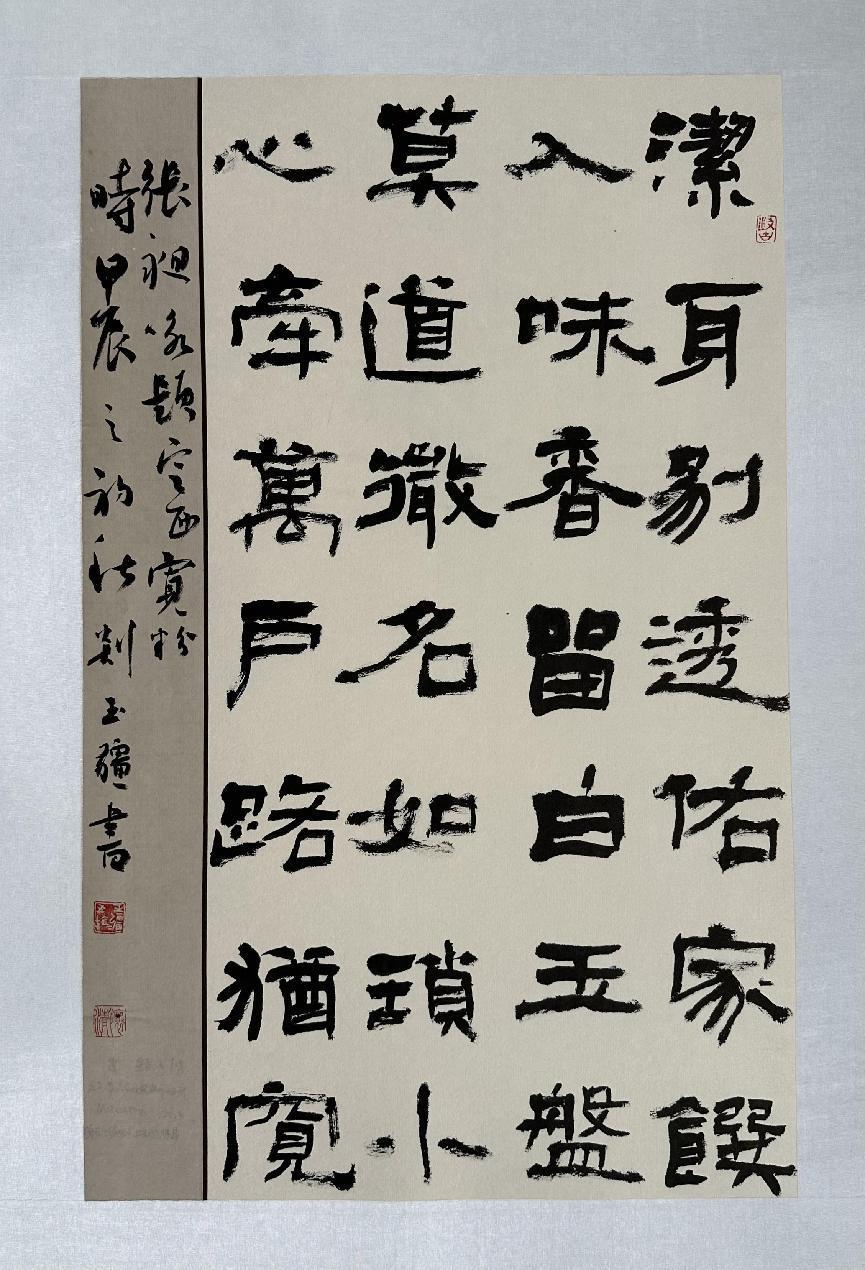 潔身剔透佑家饌
入味香留白玉盤
莫道微名如瑣小
心牽萬戶路猶寬
張咏題定西寬粉
時甲辰之初秋劉玉疆書